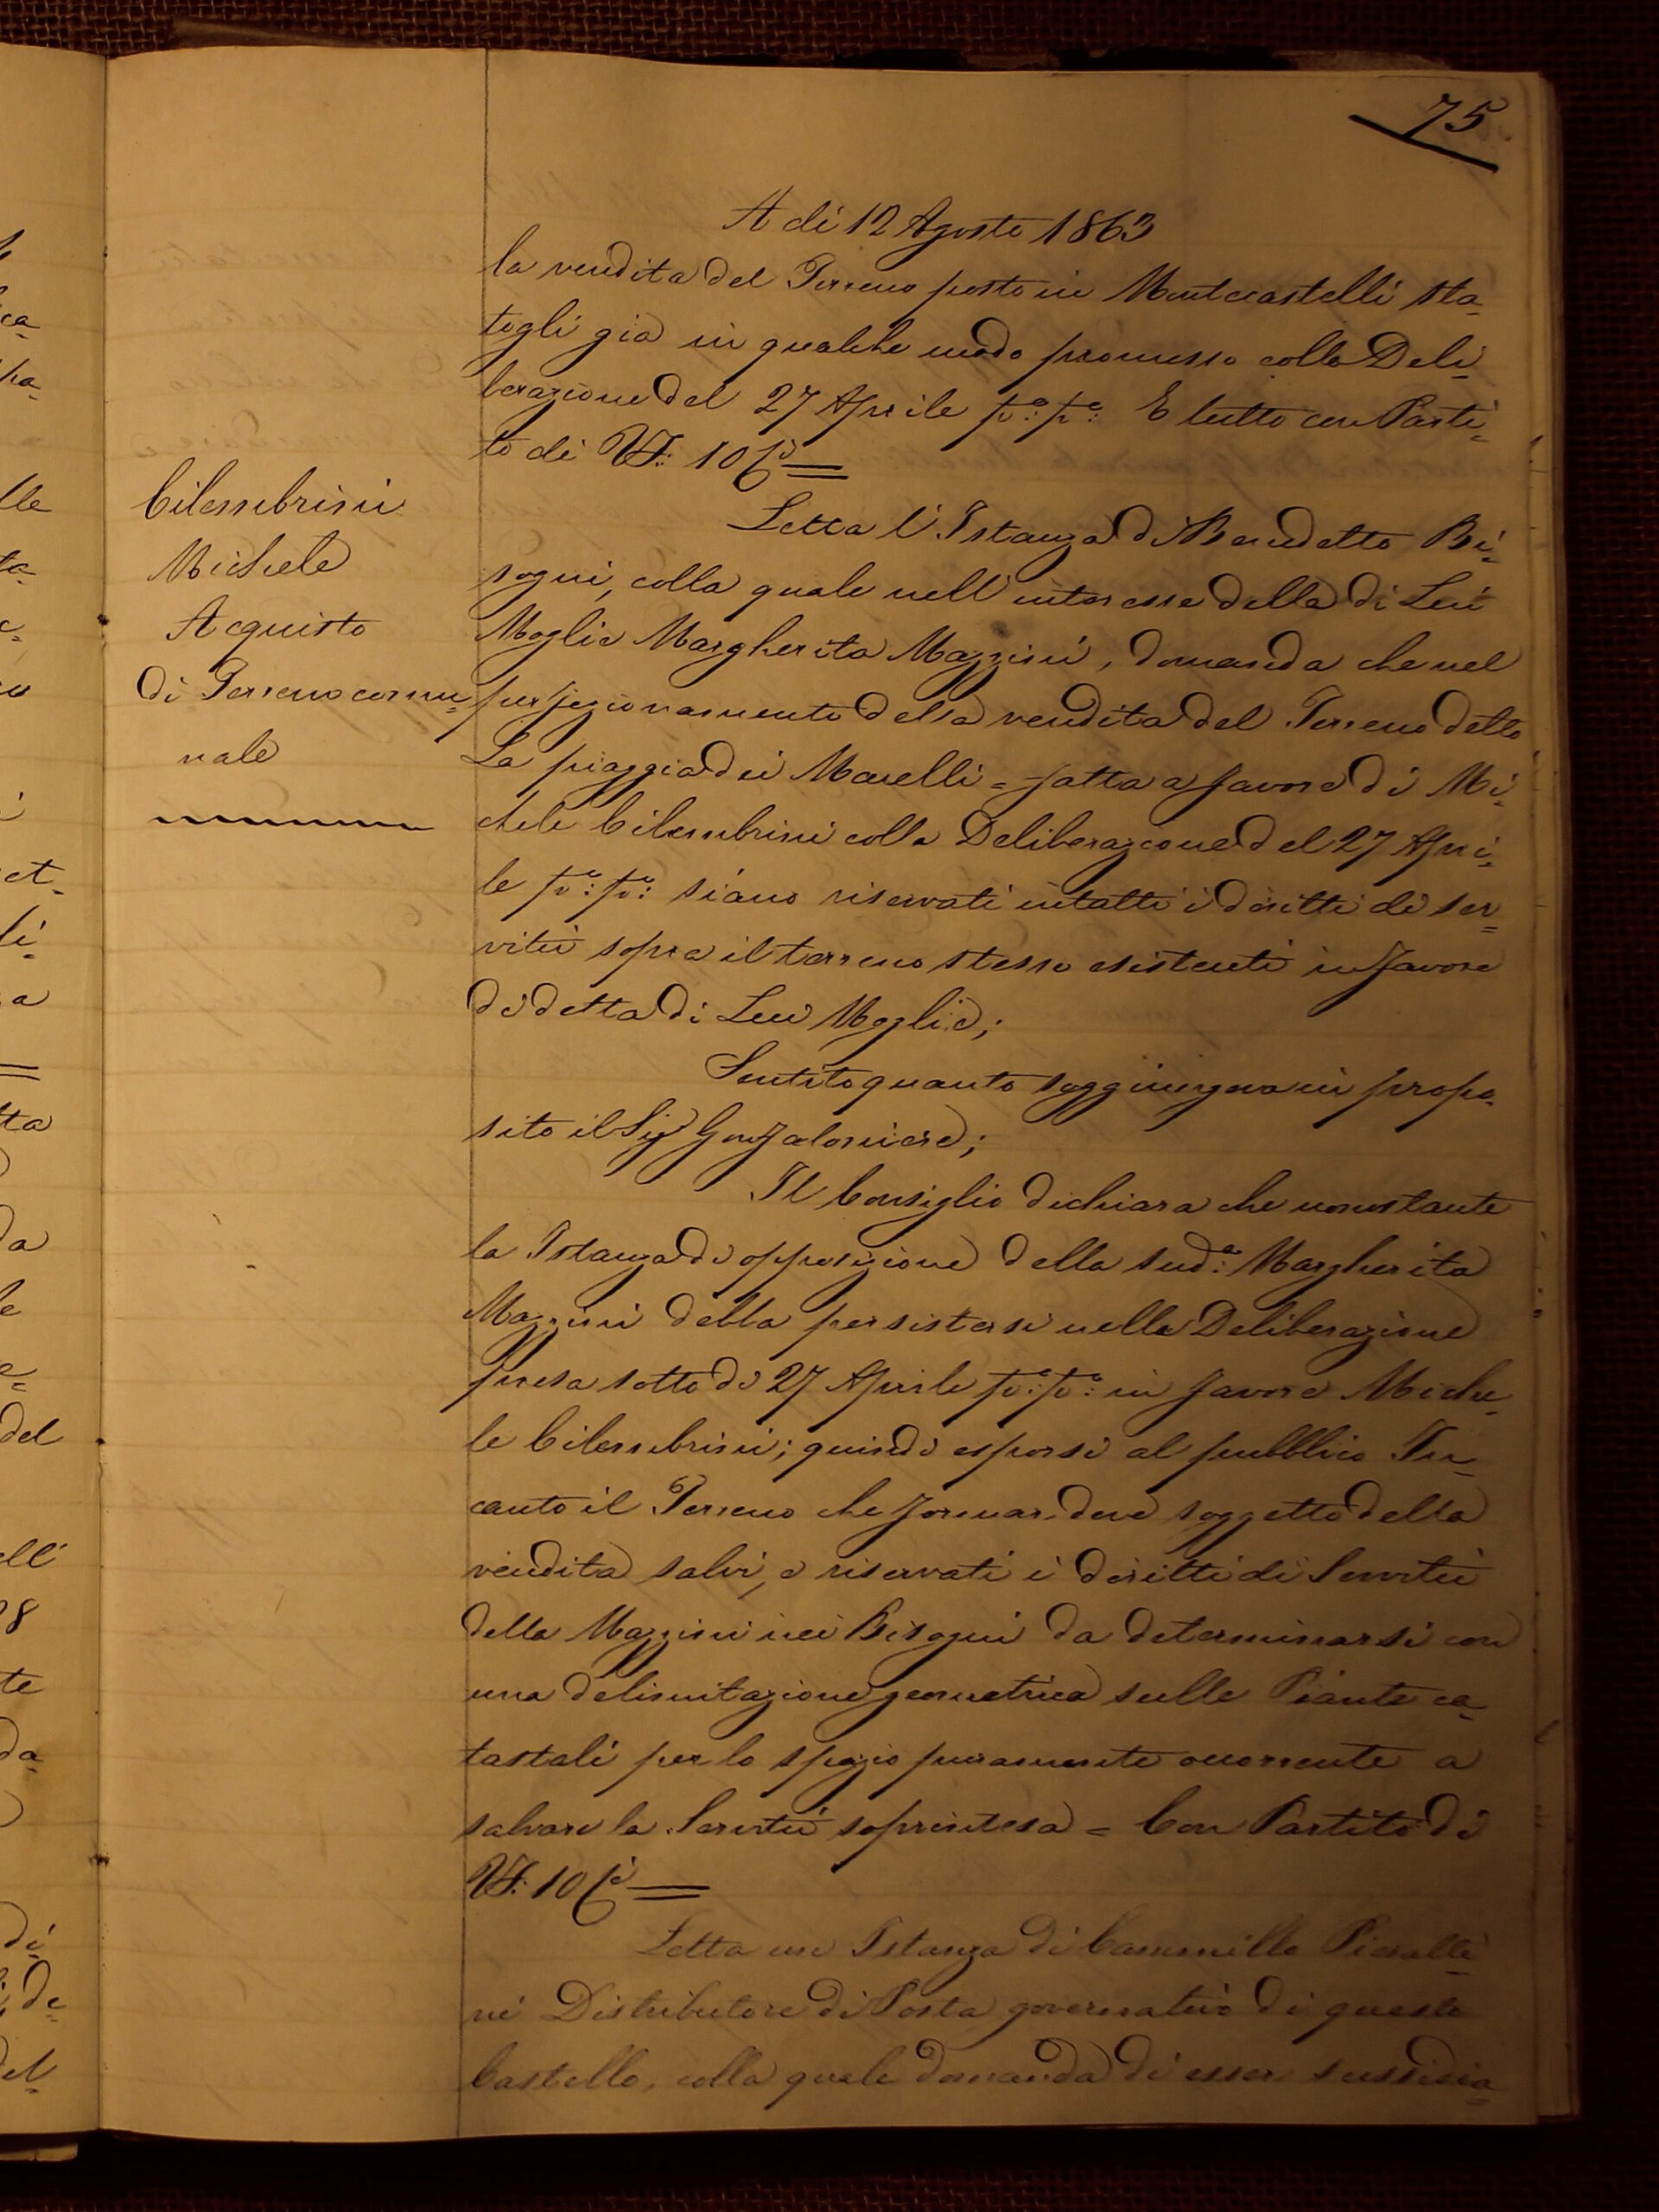 75
A di 12 Agosto 1863
la vendita del Terreno posto in Montecastelli sta=
togli già in qualche modo promesso colla Deli=
berazione del 27 Aprile p.º p.º: E tutto con Parti=
to di VF: 10
Cilembrini
Michele
Acquisto
di Terreno comu=
nale
Letta l'Istanza di Benedetto Bi=
sogni, colla quale nell'interesse della di Lui
Moglie Margherita Mazzini, domanda che nel
perfezionamento della vendita del Terreno detto
La piaggia dei Manelli = fatta a favore di Mi=
chele Cilembrini colla Deliberazione del 27 Apri=
le p.º: p.º: siano riservati intatti i diritti di ser=
vitù sopra il terreno stesso esistenti in favore
di detta di Lui Moglie;
Sentito quanto soggiungeva in propo=
sito il Sig Gonfaloniere;
Il Consiglio dichiara che nonostante
la Istanza di opposizione della sud.ª: Margherita
Mazzini debba persistersi nella Deliberazione
presa sotto dì 27 Aprile p.º: p.º: in favore Miche=
le Cilembrini; quindi esporsi al pubblico In=
canto il Terreno che formar deve soggetto della
vendita salvi, e riservati i diritti di Servitù
della Mazzini nei Bisogni da determinarsi con
una delimitazione geometrica sulle Piante ca=
tastali per lo spazio puramente occorrente a
salvare la Servitù soprintesa = Con Partito di
VF: 10
Letta un Istanza di Cammillo Pieralli=
ni Distributore di Posta governativo di questo
Castello, colla quale domanda di esser sussidia=